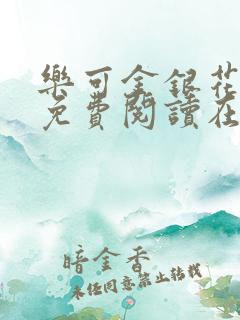 樂可金銀花
免費閱讀在
暗金香
未經同意禁止轉載